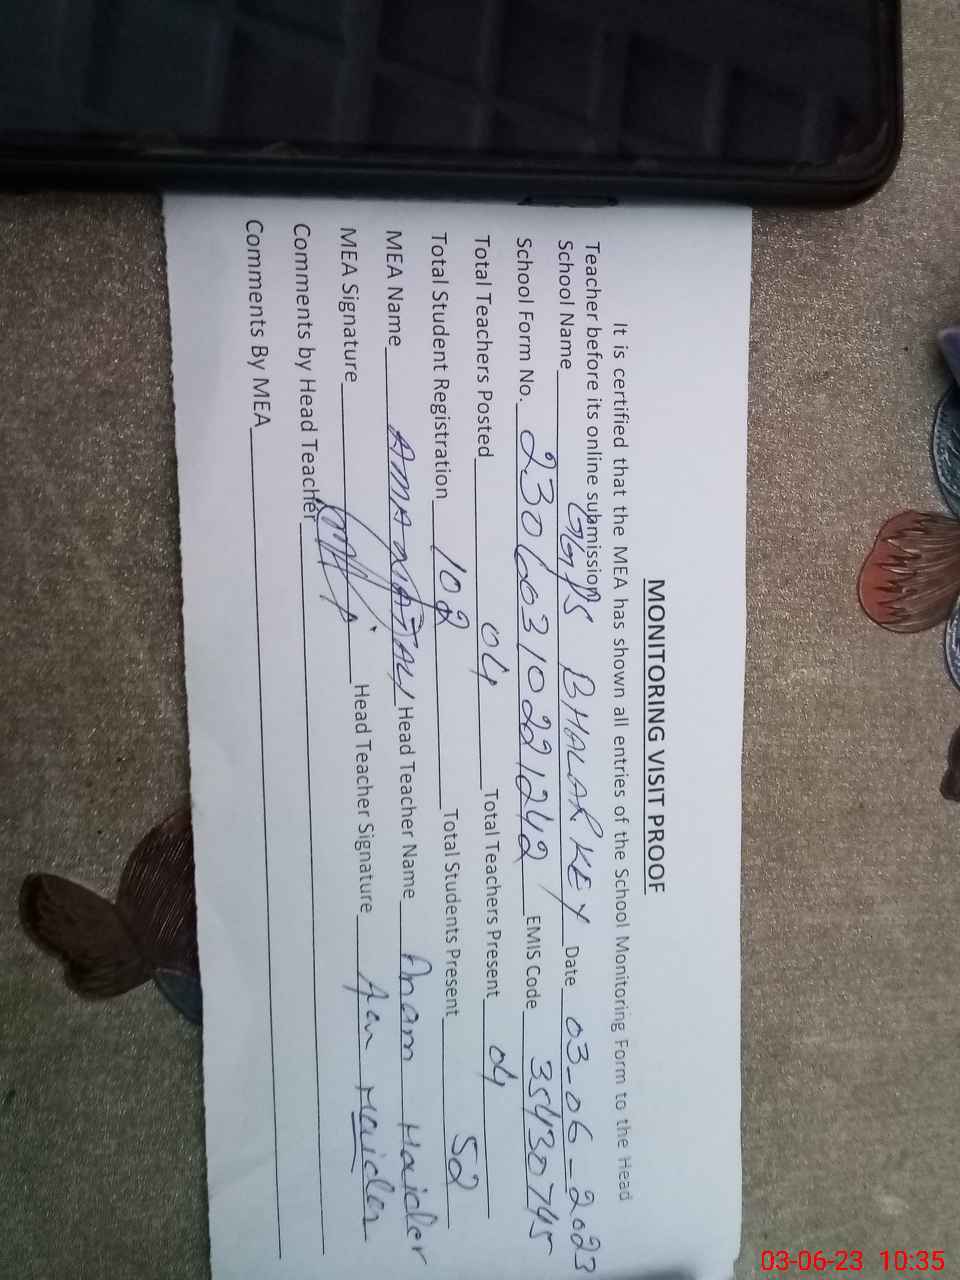 MONITORING VISIT PROOF
It is certified that the MEA has shown all entries of the School Monitoring Form to the Head
Teacher before its online submissions
School Name GGPS BHALAR KEY Date 03-06-2023
School Form No. 230603 1022 1242 EMIS Code 35430745
Total Teachers Posted 04 Total Teachers Present 04
Total Student Registration 102 Total Students Present 52
MEA Name Head Teacher Name Anam Haider
MEA Signature Head Teacher Signature Haider
Comments by Head Teacher
Comments By MEA
03-06-23 10:35